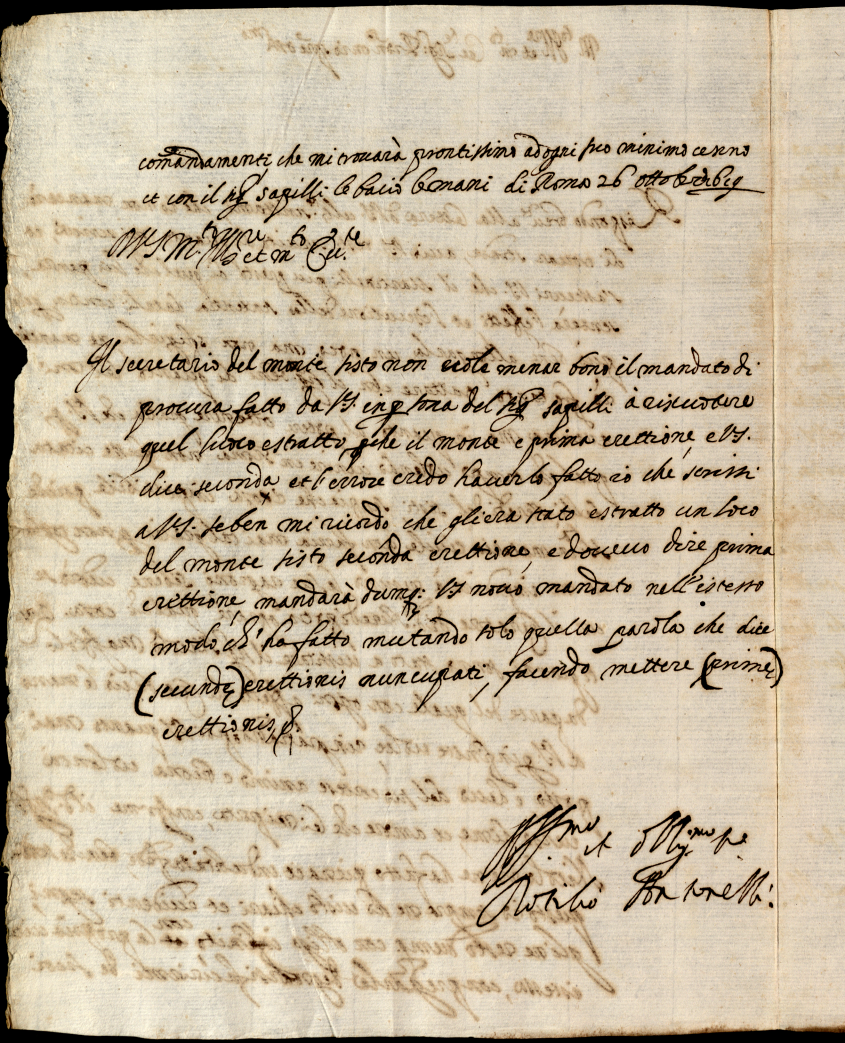 comandamenti, che mi trovarà prontissimo ad ogni suo minimo cenno
et con il sig.r sapilli le bacio le mani di Roma 26 ottobre
D V S M.to Ill.re et m.to
Il secretario del monte sisto non vole menar bono il mandato di
procura fatto da VS in p̱sona del sig.r sapilli à riscuotere
quel luoco estratto, p̱che il monte e prima erettione, e VS.
dice seconda et l'errore credo haverlo fatto io che scrissi
a VS. se ben mi ricordo che gli era stato estratto un loco
del monte sisto seconda erettione, e dovevo dire prima
erettione, mandarà dunq: VS novo mandato nell'istesso
modo, ch' ha fatto mutando solo quella parola che dice
(secundę) erettionis nuncupati, facendo mettere (primę)
erettionis,
Aff.mo et Oblig.mo se.
Antonelli